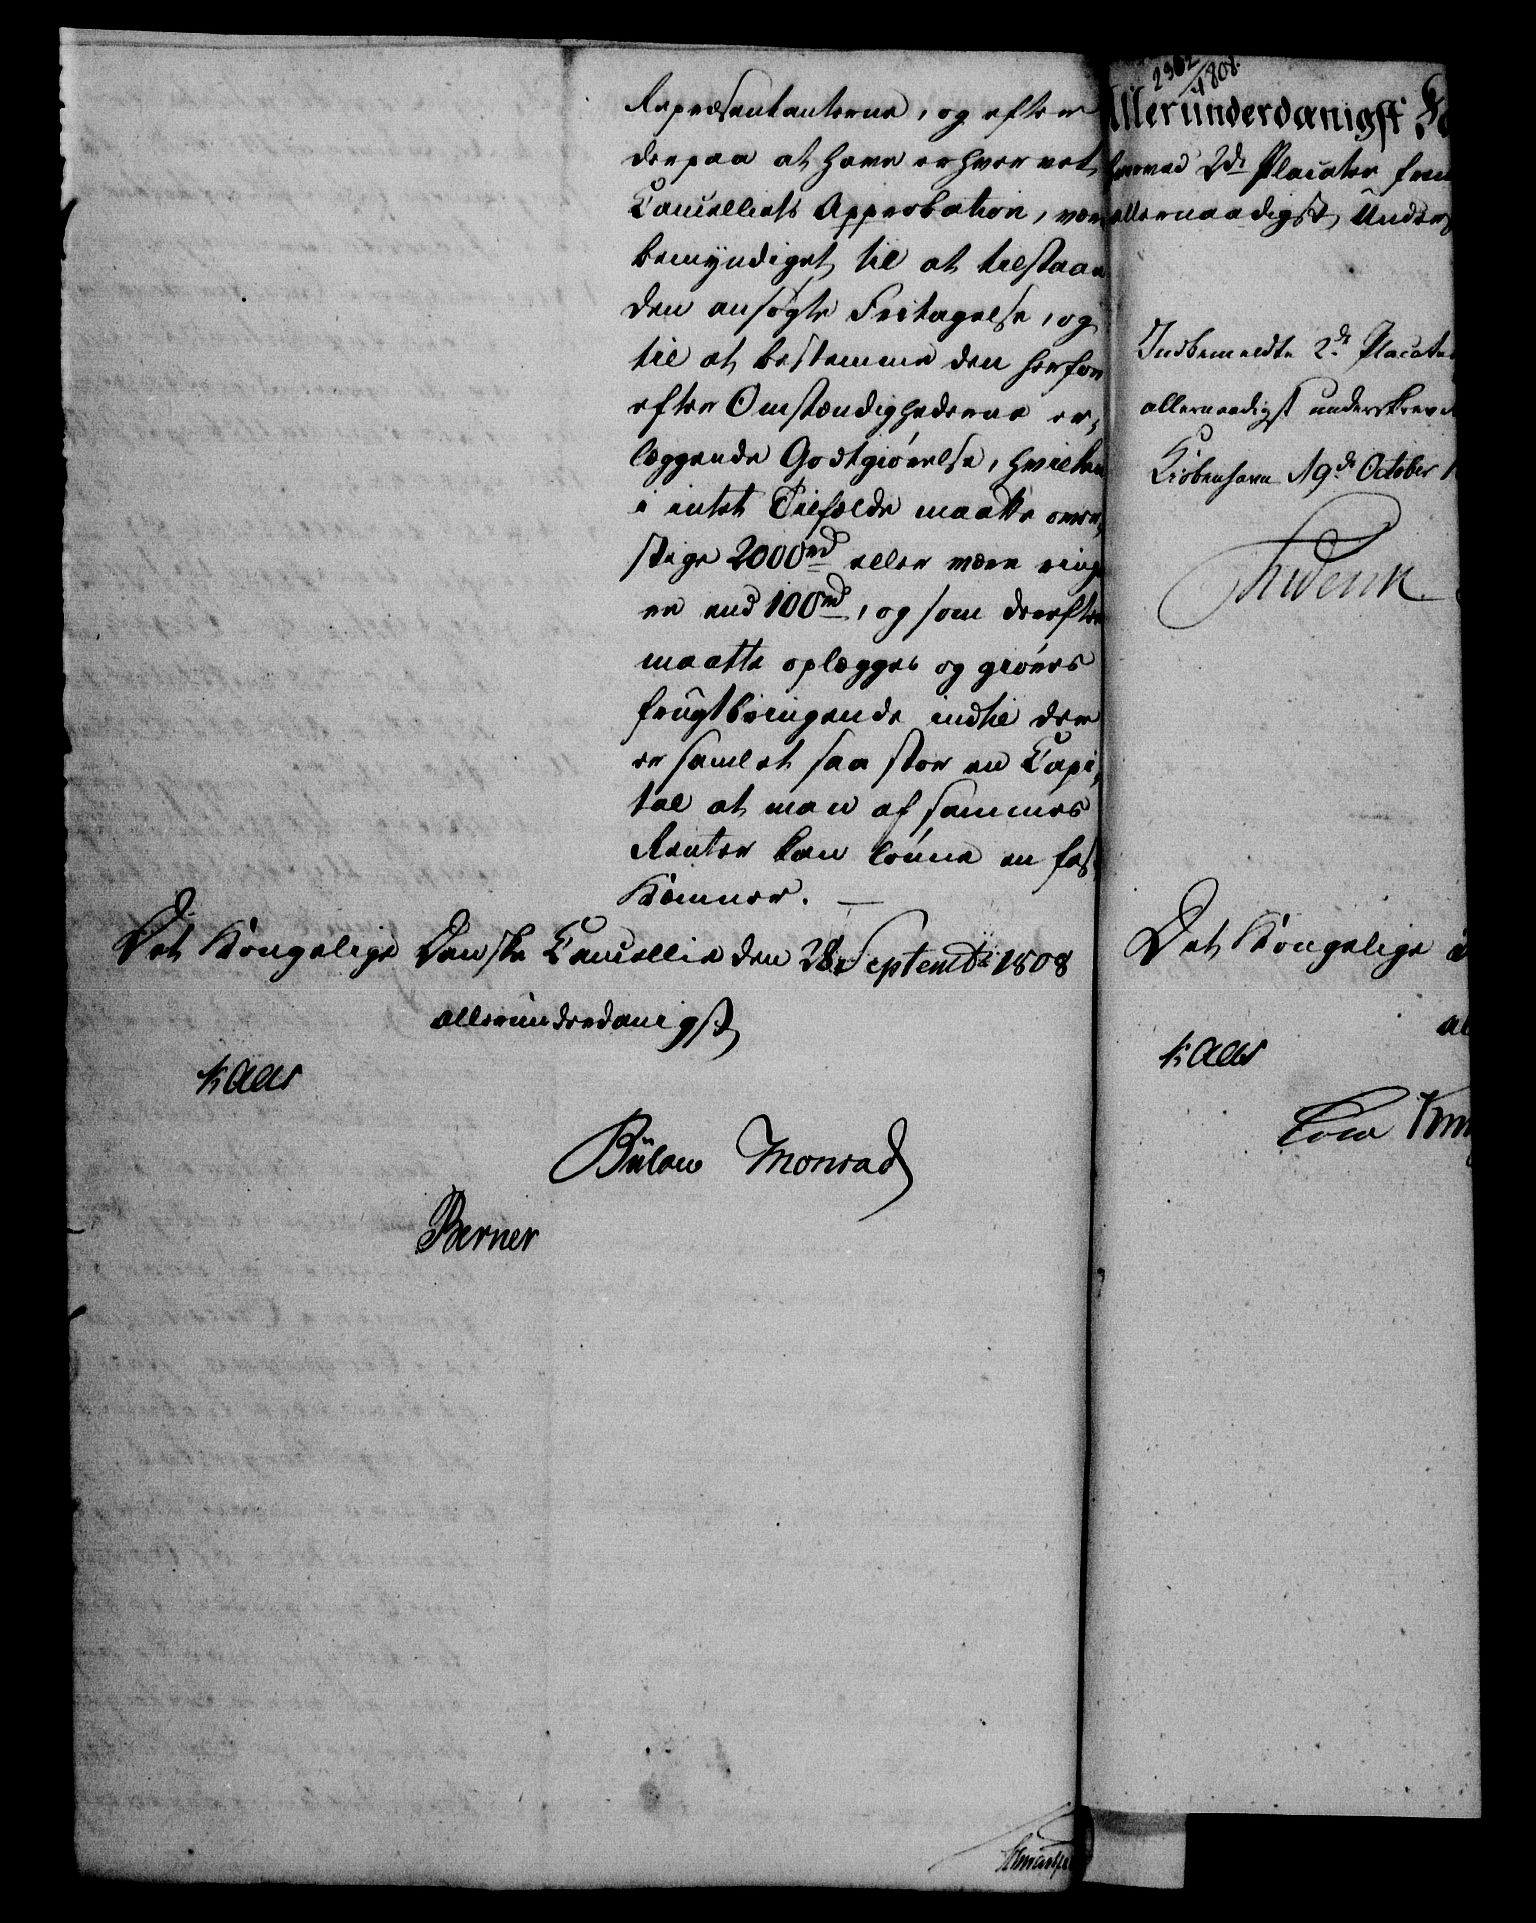 Repræsentanterne, og efter
derpaa at have erhvervet
Cancelliets Approbation, være
bemyndiget til at tilstaae
den ansøgte Fritagelse, og
til at bestemme den herfor
efter Omstændighederne er,
læggende Godtgiörelse, hvilken
i intet Tilfælde maatte over,
stige 2000 rd eller være ring
er end 100 rd, og som derefter
maatte oplægges og giöres
frugtbringende indtil der
er samlet saa stor en Capi,
tal at man af sammes
Renter kan lönne en fast
Kæmner. —
Det Kongelige Danske Cancellie den 28 Septembr 1808
allerunderdanigst
Kaas
Bülow Monrad
Berner
2302/1808.
Allerunderdanigst
hermed 2de Placater frem
allernaadigst Unders
Indbemeldte 2de Placate
allernaadigst underskreve
Kiöbenhavn 19de October 1
Friderik
Det Kongelige
al
Kaas